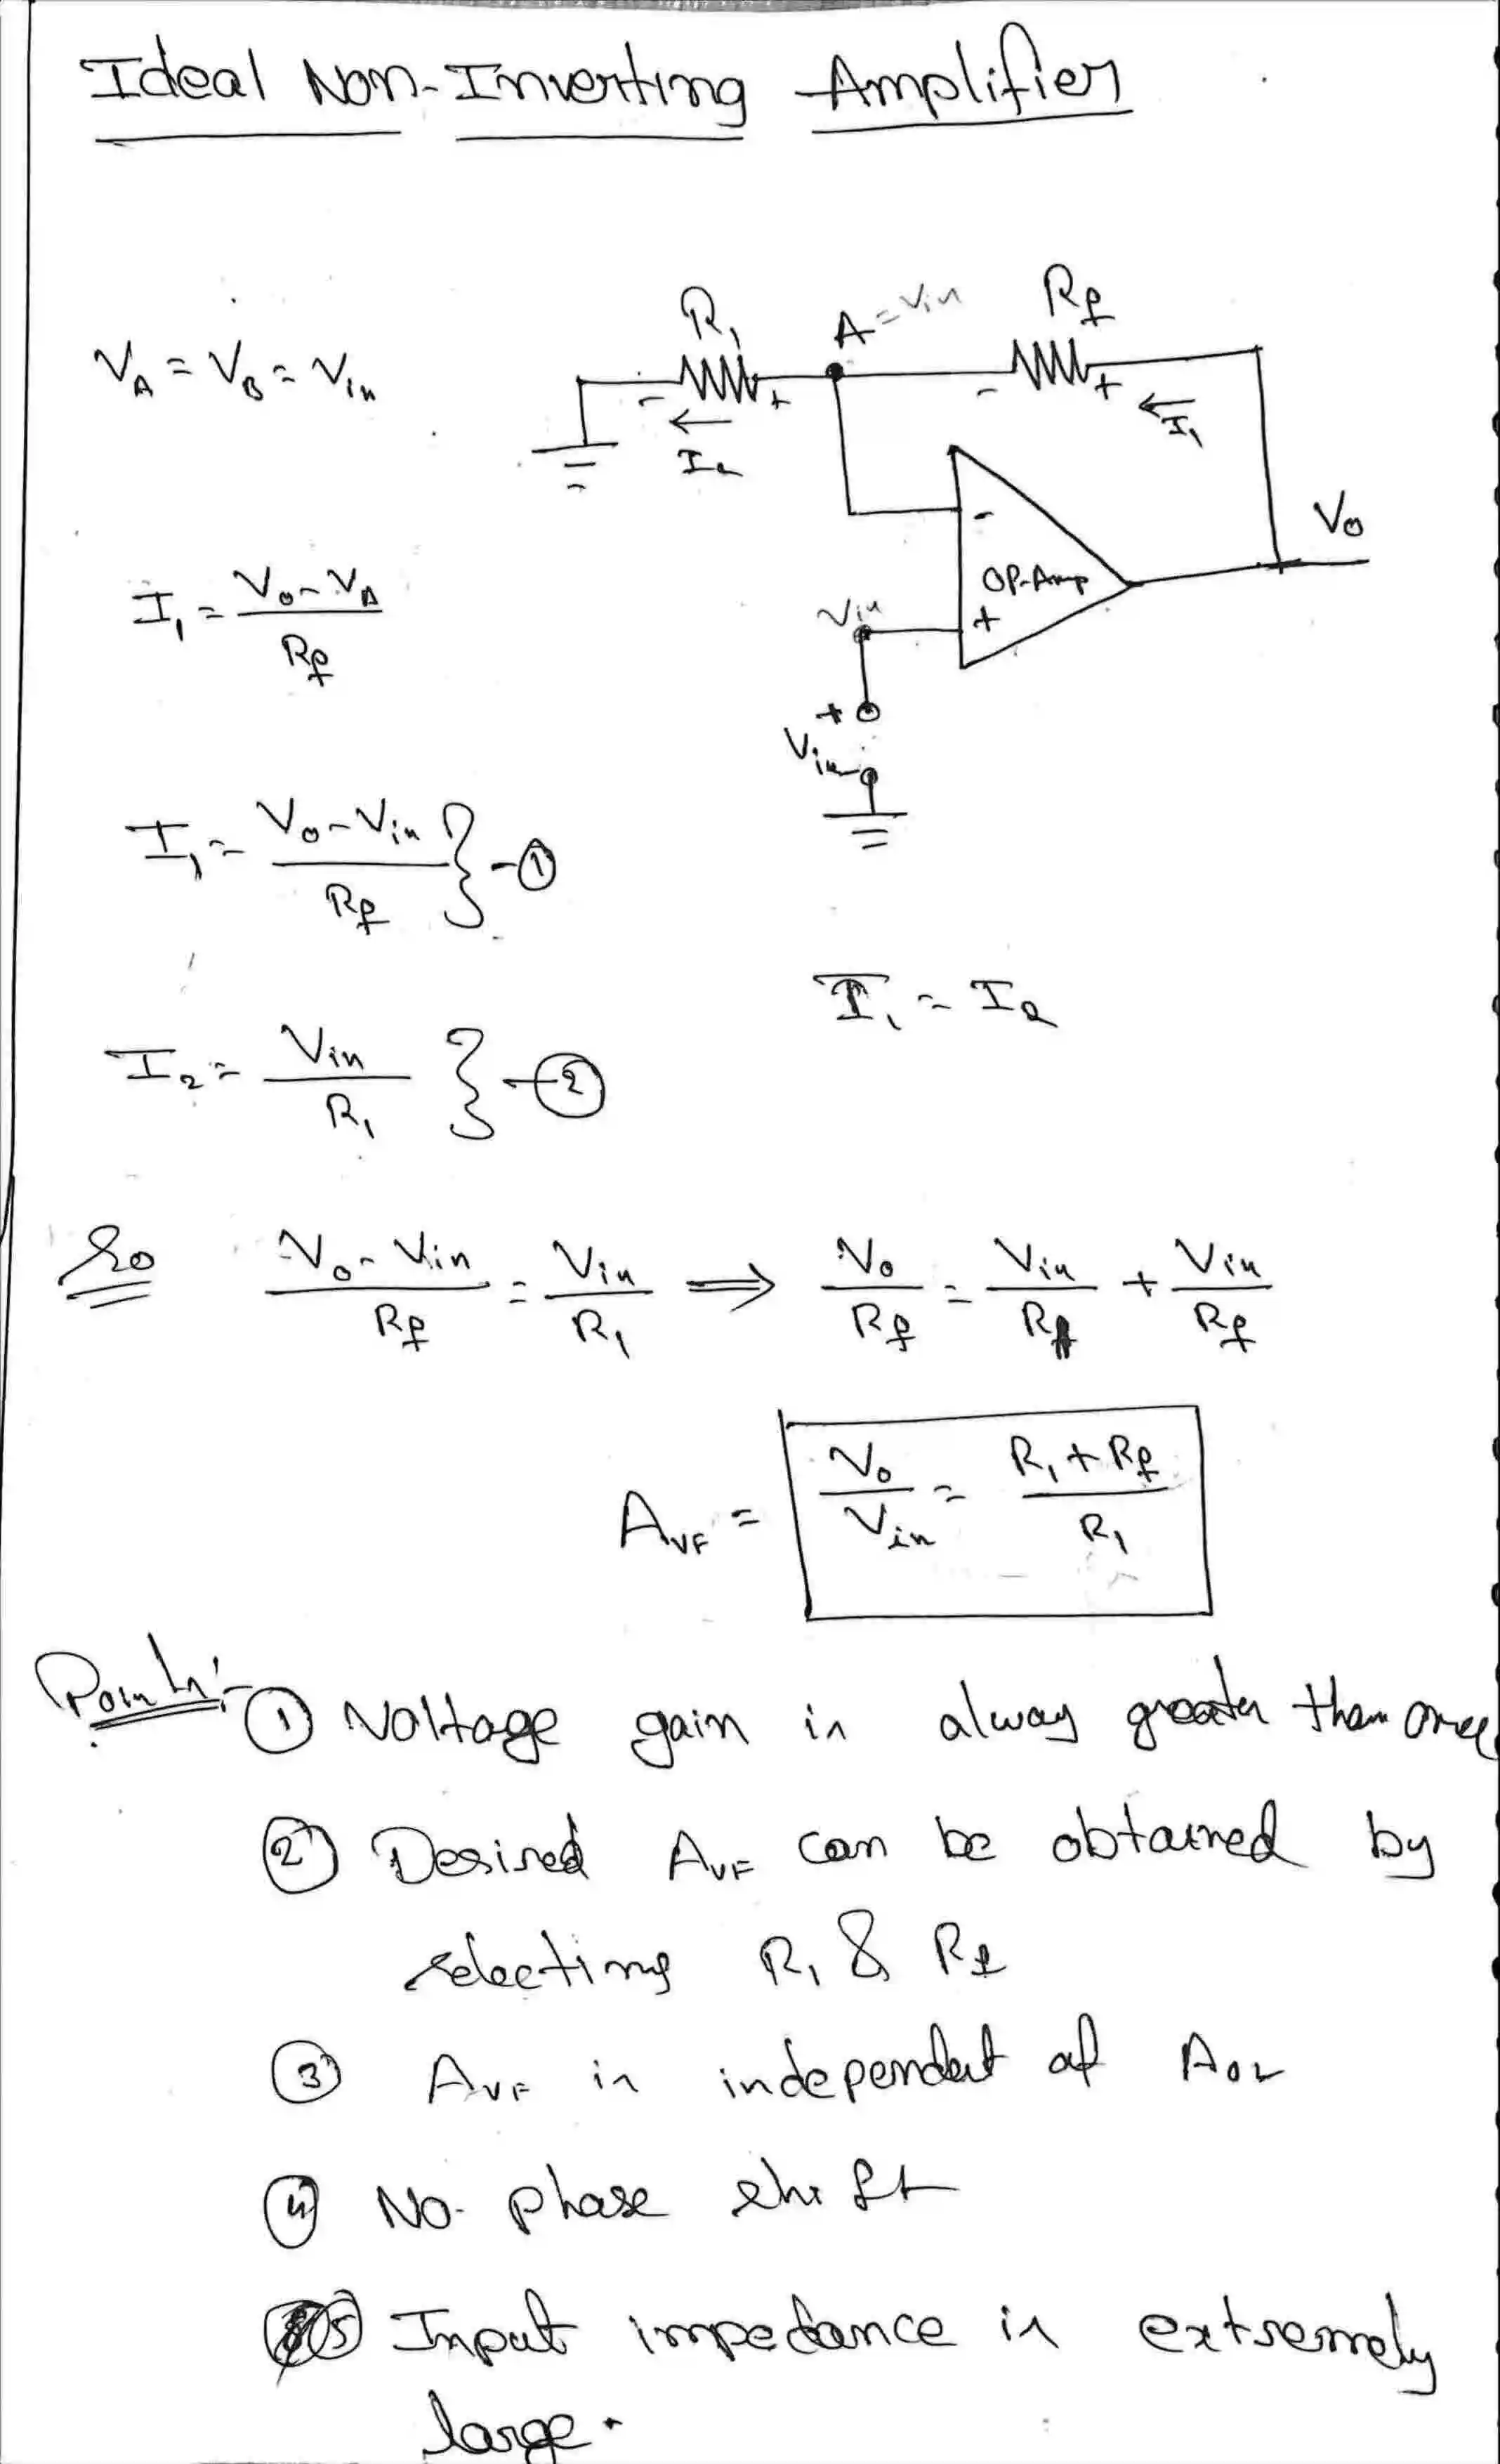 Ideal Non-Inverting Amplifier
V_A = V_B = V_in
R_1
A = V_in
R_f
- +
- +
I_2
I_1
-
OP-Amp
+
V_o
V_in
+
V_in
I_1 = (V_o - V_A) / R_f
I_1 = (V_o - V_in) / R_f } - ①
I_1 = I_2
I_2 = V_in / R_1 } - ②
So (V_o - V_in) / R_f = V_in / R_1 ⇒ V_o / R_f = V_in / R_1 + V_in / R_f
A_VF = V_o / V_in = (R_1 + R_f) / R_1
Points:- ① Voltage gain is alway greater than one
② Desired A_VF can be obtained by
selecting R_1 & R_f
③ A_VF is independent of A_OL
④ No phase shift
⑤ Input impedance is extremely
large.